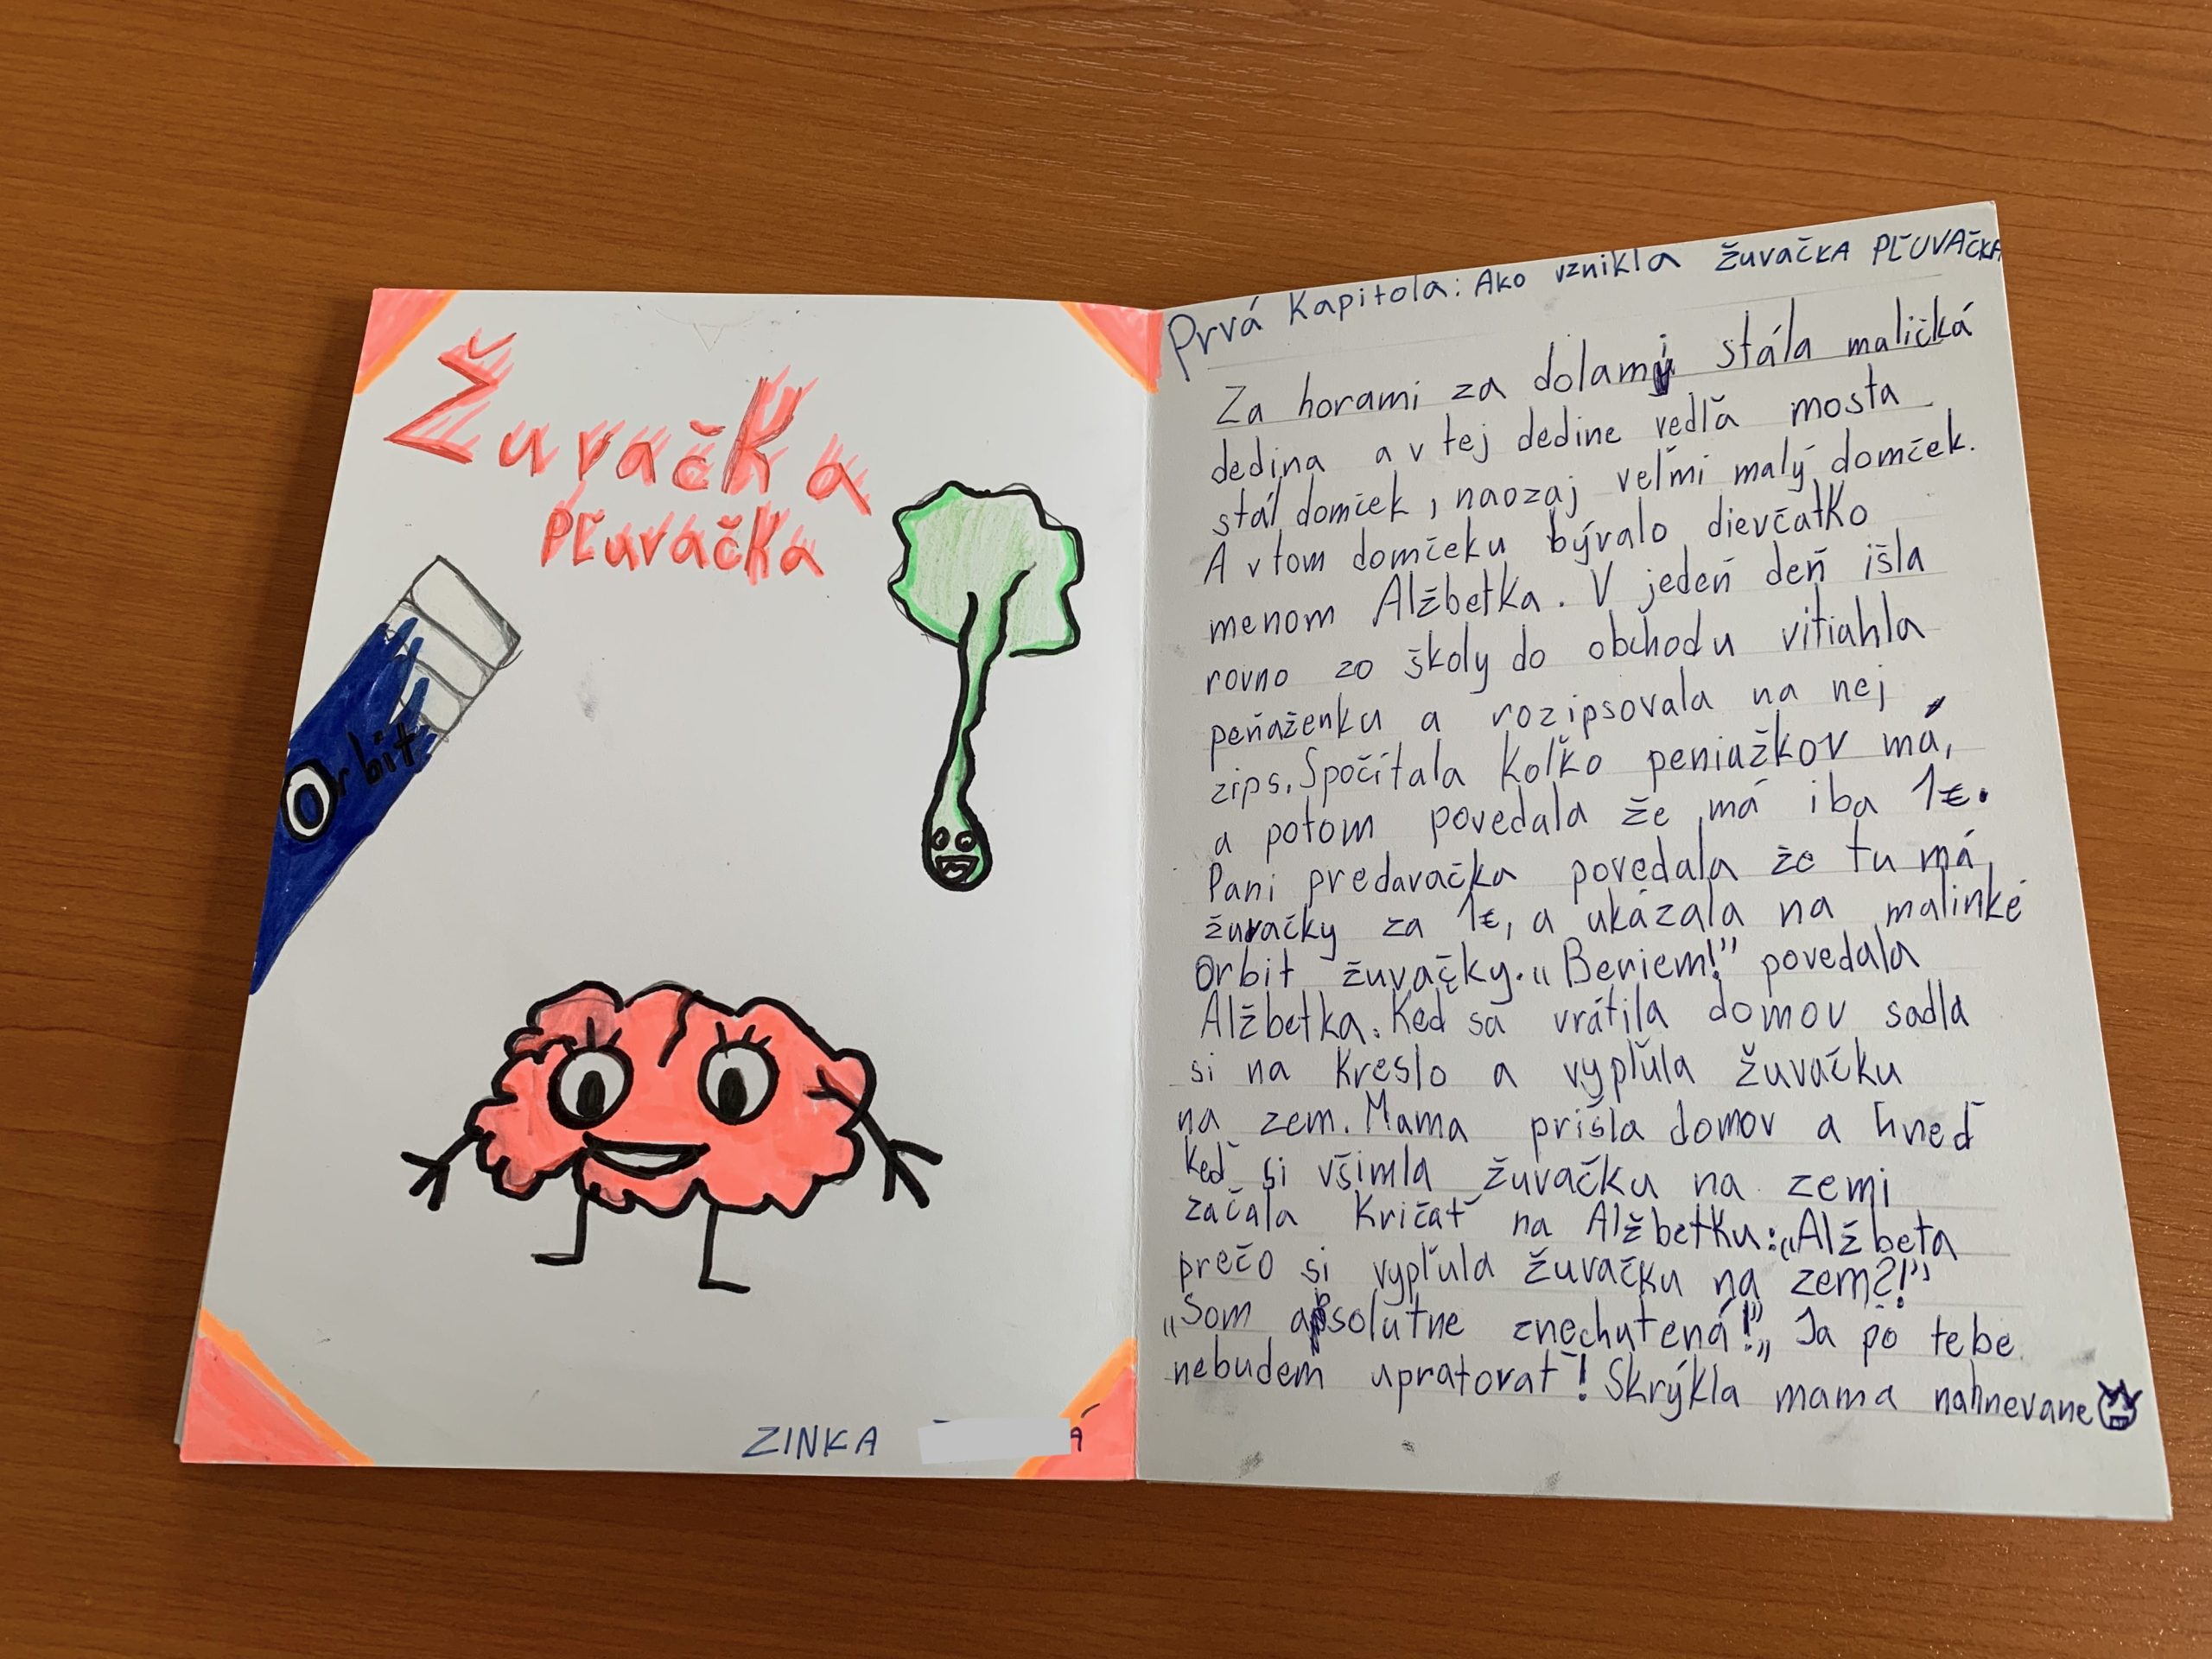 Žuvačka
PĽuvačka
Orbit
ZINKA
Prvá Kapitola: Ako vznikla ŽuvačKA PĽUVAčKA
Za horami za dolami stála maličká
dedina a v tej dedine vedľa mosta
stál domček, naozaj veľmi malý domček.
A v tom domčeku bývalo dievčatko
menom Alžbetka. V jedeň deň išla
rovno zo školy do obchodu vitiahla
peňaženku a rozipsovala na nej
zips. Spočítala Koľko peniažkov má,
a potom povedala že má iba 1€.
Pani predavačka povedala že tu má
žuvačky za 1€, a ukázala na malinké
Orbit žuvačky. „Beriem!" povedala
Alžbetka. Keď sa vrátila domov sadla
si na Kreslo a vypľula žuvačku
na zem. Mama prišla domov a hneď
keď si všimla žuvačku na zemi
začala Kričať na Alžbetku: „Alžbeta
prečo si vypľula žuvačku na zem?!"
„Som absolútne znechutená!" „Ja po tebe
nebudem upratovať! Skrýkla mama nahnevane